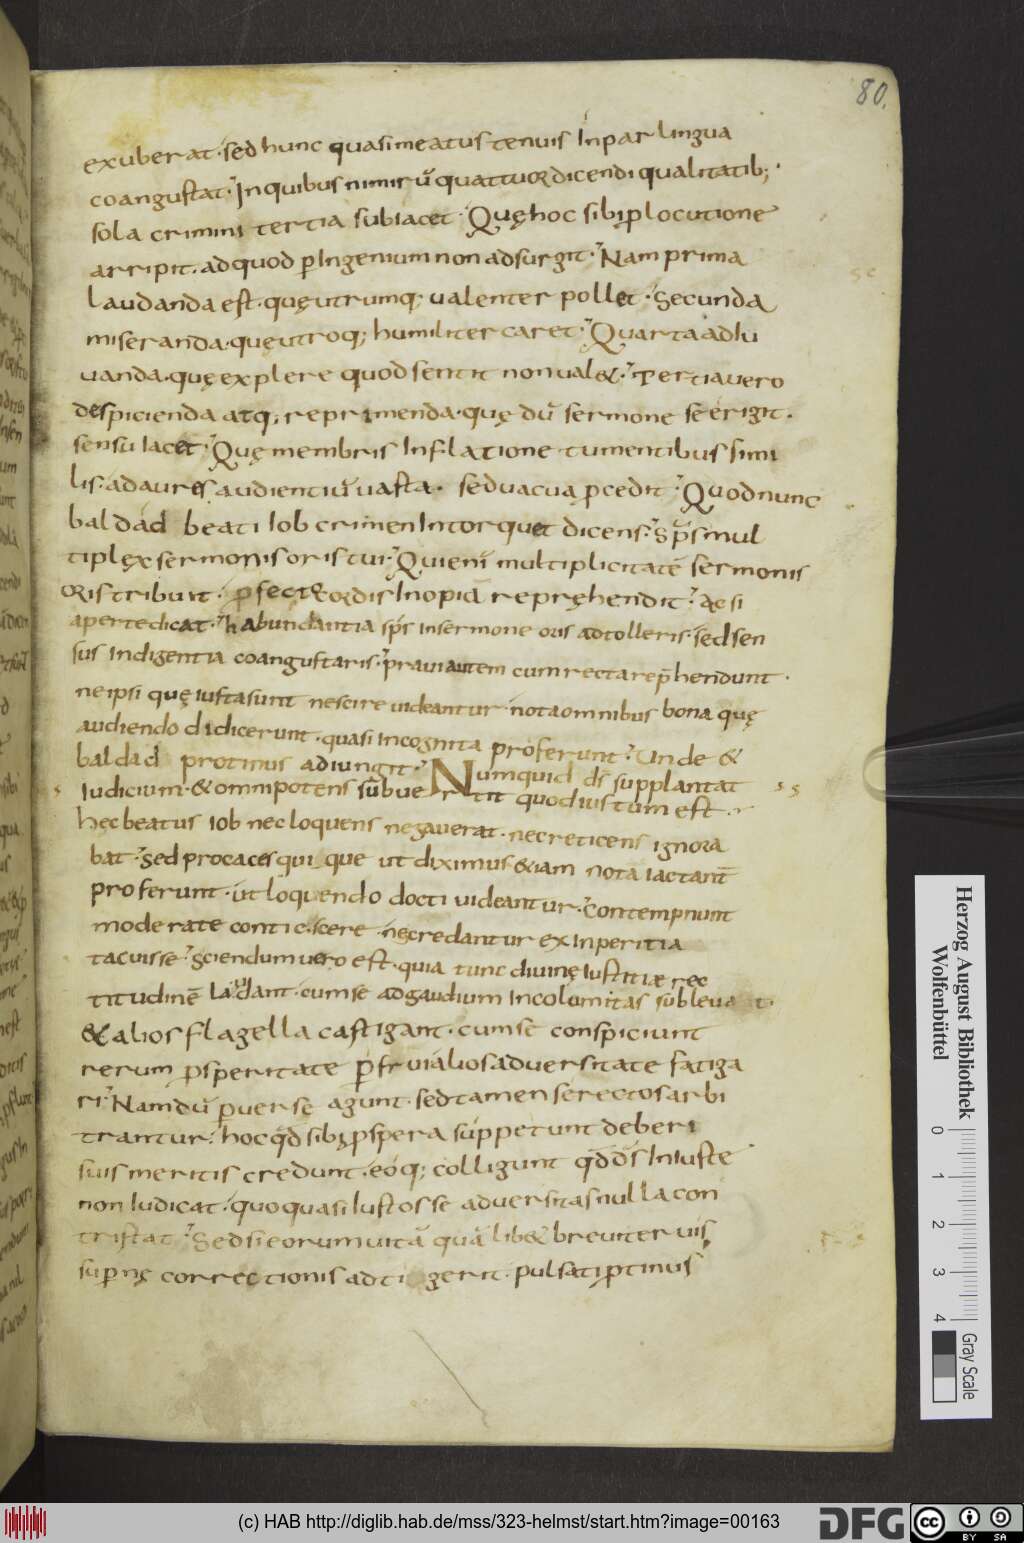 80.
exuberat. sed hunc quasi meatus tenuis Inpar lingua
coangustat. In quibus nimirū quattuor dicendi qualitatib;.
sola crimini tertia subiacet. Quę hoc sibi plocutione
arripit. ad quod pIngenium non adsurgit. Nam prima
laudanda est. quę utrumq; ualenter pollet. Secunda
miseranda. quę utroq; humiliter caret. Quarta adiu
uanda. quę explere quod sentit non ual&. Tertia uero
despicienda atq; reprimenda. quę dū sermone se erigit.
sensu Iacet. Quę membris Inflatione tumentibus simi
lis. ad aures audientiū uasta. sed uacua pcedit. Quod nunc
baldad beati Iob crimen Intorquet dicens. Sps mul
tiplex sermonis oris tui. Qui enī multiplicitatē sermonis
oris tribuit. pfecto cordis Inopiā repręhendit. Ac si
aperte dicat. habundantia sps in sermone oris adtolleris. sed sen
sus Indigentia coangustaris. praui autem cum recta rephendunt.
ne ipsi quę iusta sunt nescire uideantur. nota omnibus bona quę
audiendo didicerunt. quasi Incognita proferunt. Unde &
baldad protinus adiungit. Numquid ds supplantat
Iudicium. & omnipotens subuertit quod iustum est.
hęc beatus Iob nec loquens negauerat. nec reticens ignora
bat. Sed procaces quique ut diximus &iam nota iactanť
proferunt. ut loquendo docti uideantur. Contempnunt
moderate conticiscere. ne credantur ex Inperitia
tacuisse. Sciendum uero est. quia tunc diuinę Iustitiae rec
titudinē Laudant. cum se ad gaudium Incolomitas subleuat.
& alios flagella castigant. cum se conspiciunt
rerum psperitate pfrui. alios aduersitate fatiga
ri. Nam dū peruerse agunt. sed tamen se rectos arbi
trantur. hoc qd sibi pspera suppetunt deberi
suis meritis credunt. eoq; colligunt qd ds Iniuste
non Iudicat. quo quasi Iustos se aduersitas nulla con
tristat. Sed si eorum uitā quā lib& breuiter uis
supnę correctionis adtigerit. pulsati ptinus
Herzog August Bibliothek
Wolfenbüttel
0 1 2 3 4
Gray Scale
(c) HAB http://diglib.hab.de/mss/323-helmst/start.htm?image=00163
DFG
cc
BY SA